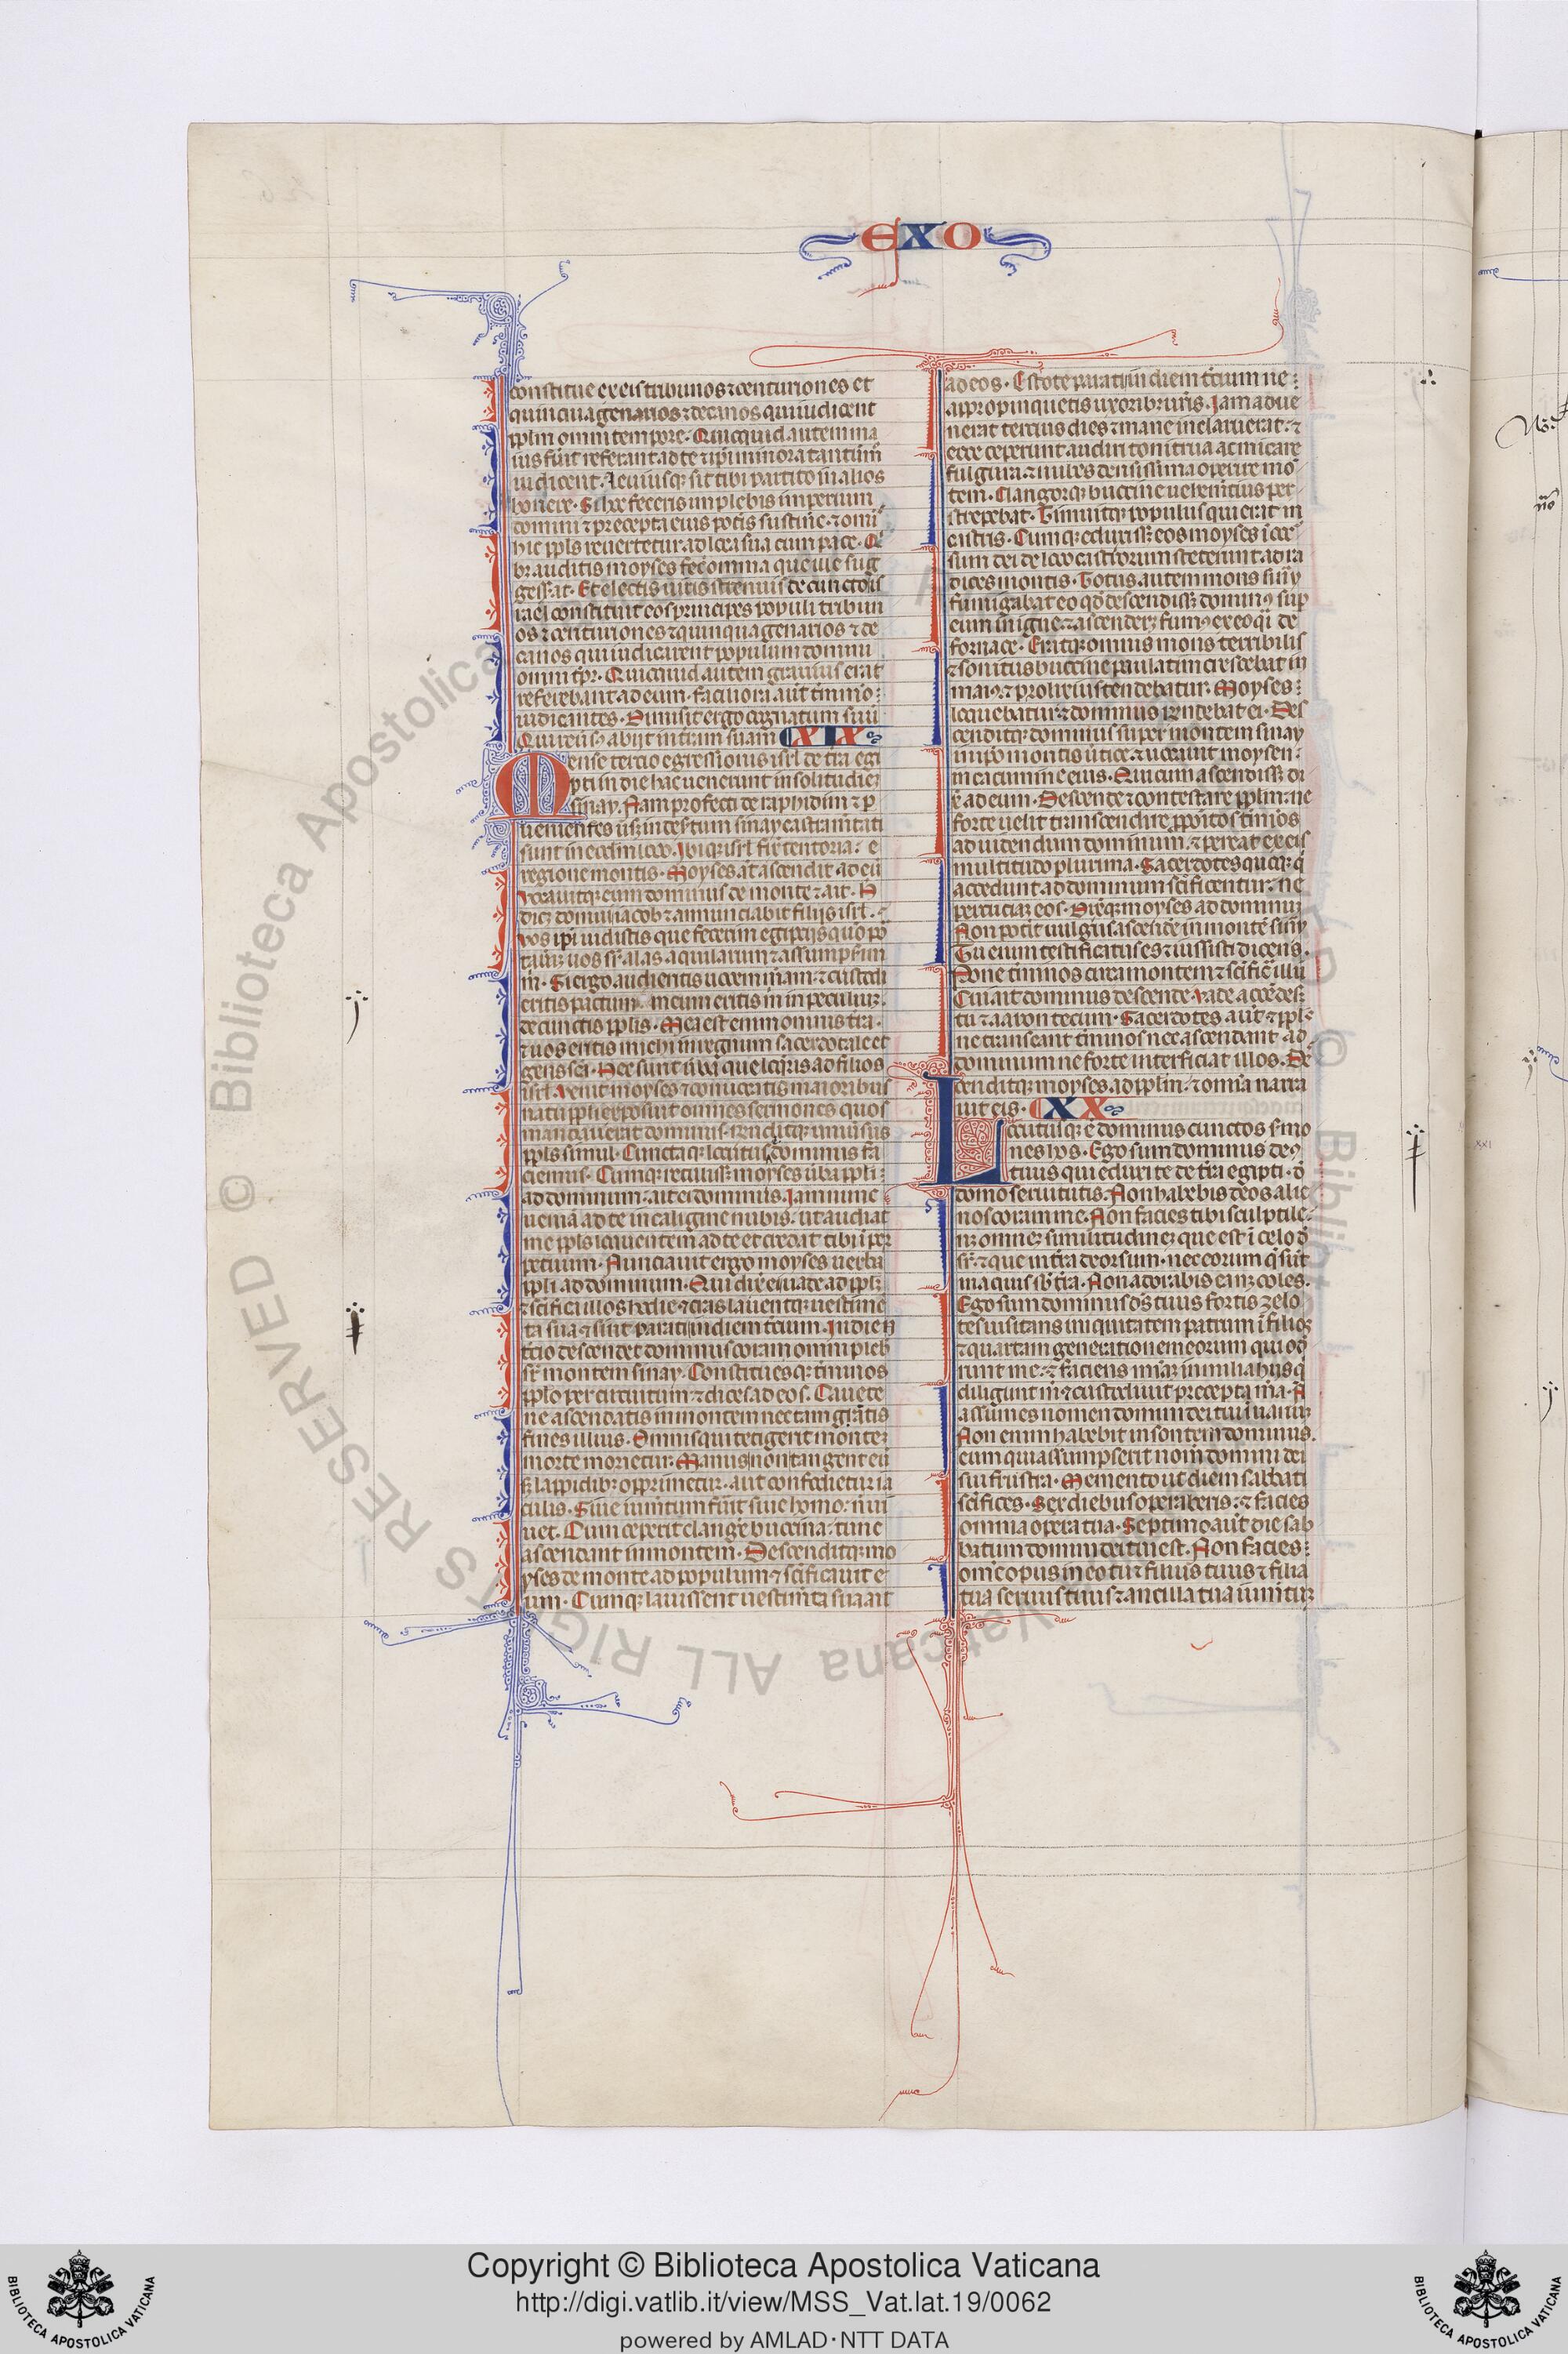 EXO
constitue ex eis tribunos ⁊ centuriones et
quinquagenarios ⁊ decanos qui iudicent
pplm omni tempore. Quicquid autem ma
ius fuit referant ad te ⁊ ipi minora tantum
iudicent. Leuiusq; sit tibi partito in alios
honere. Si hec feceris implebis imperium
domini ⁊ precepta eius potis sustine. ⁊ omis
hic ppls reuertetur ad loca sua cum pace. Qi
br auditis moyses fec omnia que ille sug
gesserat. Et electis uiris strenuis de cuncto is
rael constituit eos principes populi tribun
os ⁊ centuriones ⁊ quinquagenarios ⁊ de
canos qui iudicarent populum domini
omni tpr. Quicquid autem grauius erat
referebant ad eum. faciliora aut tmmo
iudicantes. Dimisit ergo cognatum suu
Qui reusus abiit in tram suam XIX
Mense tercio egressionis isrl de tra egi
pti in die hac uenerunt in solitudiez
synay. Nam profecti de raphidim ⁊ p
uenientes usq; in desertum sinay castrametati
sunt in eodem loco. Ibiq; isrl fixit tentoria e
regione montis. Moyses at ascendit ad eu
Vocauitq; eum dominus de monte ⁊ ait. H
dicz domui iacob ⁊ annunciabit filiis isrl.
Vos ipi uidistis que fecerim egiptiis quo po
tauerz uos sr alas aquilarum ⁊ assumpserim
m. Si ergo audieritis uocem meam ⁊ custodi
eritis pactum meum eritis m in peculiuz
de cunctis pplis. Mea est enim omnis tra.
⁊ uos eritis michi in regnum sacerdotale et
gens sca. Hec sunt uba que loqris ad filios
isrl. Venit moyses ⁊ conuocatis maioribus
natu ppli exposuit omnes sermones quos
mandauerat dominus. Renditq; uniusus
ppls simul. Cuncta q locutus dominus fa
ciemus. Cumq; retulisset moyses uba ppli
ad dominum. ait ei dominus. Iam nunc
ueniam ad te in caligine nubis. ut audiat
me ppls loquentem ad te et credat tibi i per
petuum. Nunciauit ergo moyses uerba
ppli ad dominum. Qui dix ei uade ad pplz
⁊ scifica illos hodie ⁊ cras lauentq; uestime
ta sua ⁊ sint parati in diem tcium. In die n
tcio descendet dominus coram omni pleb
sr montem sinay. Constituesq; tminos
pplo per circuitum ⁊ dices ad eos. Cauete
ne ascendatis in montem nec tangatis
fines illius. Omnis qui tetigerit montez
morte morietur. Manus non tanget eu
sz lapidibz opprimetur. aut confodietur ia
culis. Siue iumtum fuit siue homo. n ui
uet. Cum ceperit clange buccina. tunc
ascendant in montem. Descenditq; mo
yses de monte ad populum ⁊ scificauit e
um. Cumq; lauissent uestimta sua ait
ad eos. Estote parati in diem tcium ne
appropinquetis uxoribz uris. Iam adue
nerat tercius dies ⁊ mane inclaruerat. ⁊
ecce ceperunt audiri tonitrua ac micare
fulgura ⁊ nubes densissima operire mo
tem. Clangorq; buccine uehementius per
strepebat. Timuitq; populus qui erat in
castris. Cumq; eduxisset eos moyses i occ
sum dei de loco castrorum steterunt ad ra
dices montis. Totus autem mons sinay
fumigabat eo qd descendisset dominus sup
eum in igne ⁊ ascenderz fumus ex eo qi de
fornace. Eratq; omnis mons terribilis
⁊ sonitus buccine paulatim crescebat in
maius ⁊ prolixius tendebatur. Moyses
loquebatur ⁊ dominus rendebat ei. Des
cenditq; dominus super montem sinay
in ipo montis utice ⁊ uocauit moysen
in cacumine eius. Quo cum ascendisset di
x ad eum. Descende ⁊ contestare pplm. ne
forte uelit transcendere ppoitos tminos
ad uidendum dominum. ⁊ pereat ex eis
multitudo plurima. Sacerdotes quoq; q
accedunt ad dominum scificentur. ne
percuciaz eos. Dixq; moyses ad dominuz
Non potit uulgus ascende in monte sinay
Tu enim testificatus es ⁊ iussisti dicens.
Pone tminos circa montem ⁊ scific illu
Cui ait dominus descende. Vade ascedesqz
tu ⁊ aaron tecum. Sacerdotes aut ⁊ ppls
ne transeant tminos nec ascendant ad
dominum ne forte interficiat illos. De
cenditq; moyses ad pplm. ⁊ omnia narra
uit eis. XX
Locutusq; e dominus cunctos smo
nes hos. Ego sum dominus deus
tuus qui eduxi te de tra egipti. d
domo seruitutis. Non habebis deos alie
nos coram me. Non facies tibi sculptile
nz omnez similitudinez que est i celo d
sr. ⁊ que in tra deorsum. nec eorum q sut
in aquis sb tra. Non adorabis ea nz coles.
Ego sum dominus ds tuus fortis zelo
tes uisitans iniquitatem patrum i filios
⁊ quartam generationem eorum qui od
runt me. ⁊ faciens miaz in milia hiis q
diligunt m ⁊ custodiunt precepta mea. N
assumes nomen domini dei tui in uanuz
Non enim habebit insontem dominus.
eum qui assumpserit nom domini dei
sui frustra. Memento ut diem sabbati
scifices. Sex diebus operaberis. ⁊ facies
omnia opera tua. Septimo aut die sab
batum domini dei tui est. Non facies
ome opus in eo tu ⁊ filius tuus ⁊ filia
tua seruus tuus ⁊ ancilla tua iumtuz
Copyright © Biblioteca Apostolica Vaticana
http://digi.vatlib.it/view/MSS_Vat.lat.19/0062
powered by AMLAD·NTT DATA
BIBLIOTECA APOSTOLICA VATICANA
BIBLIOTECA APOSTOLICA VATICANA